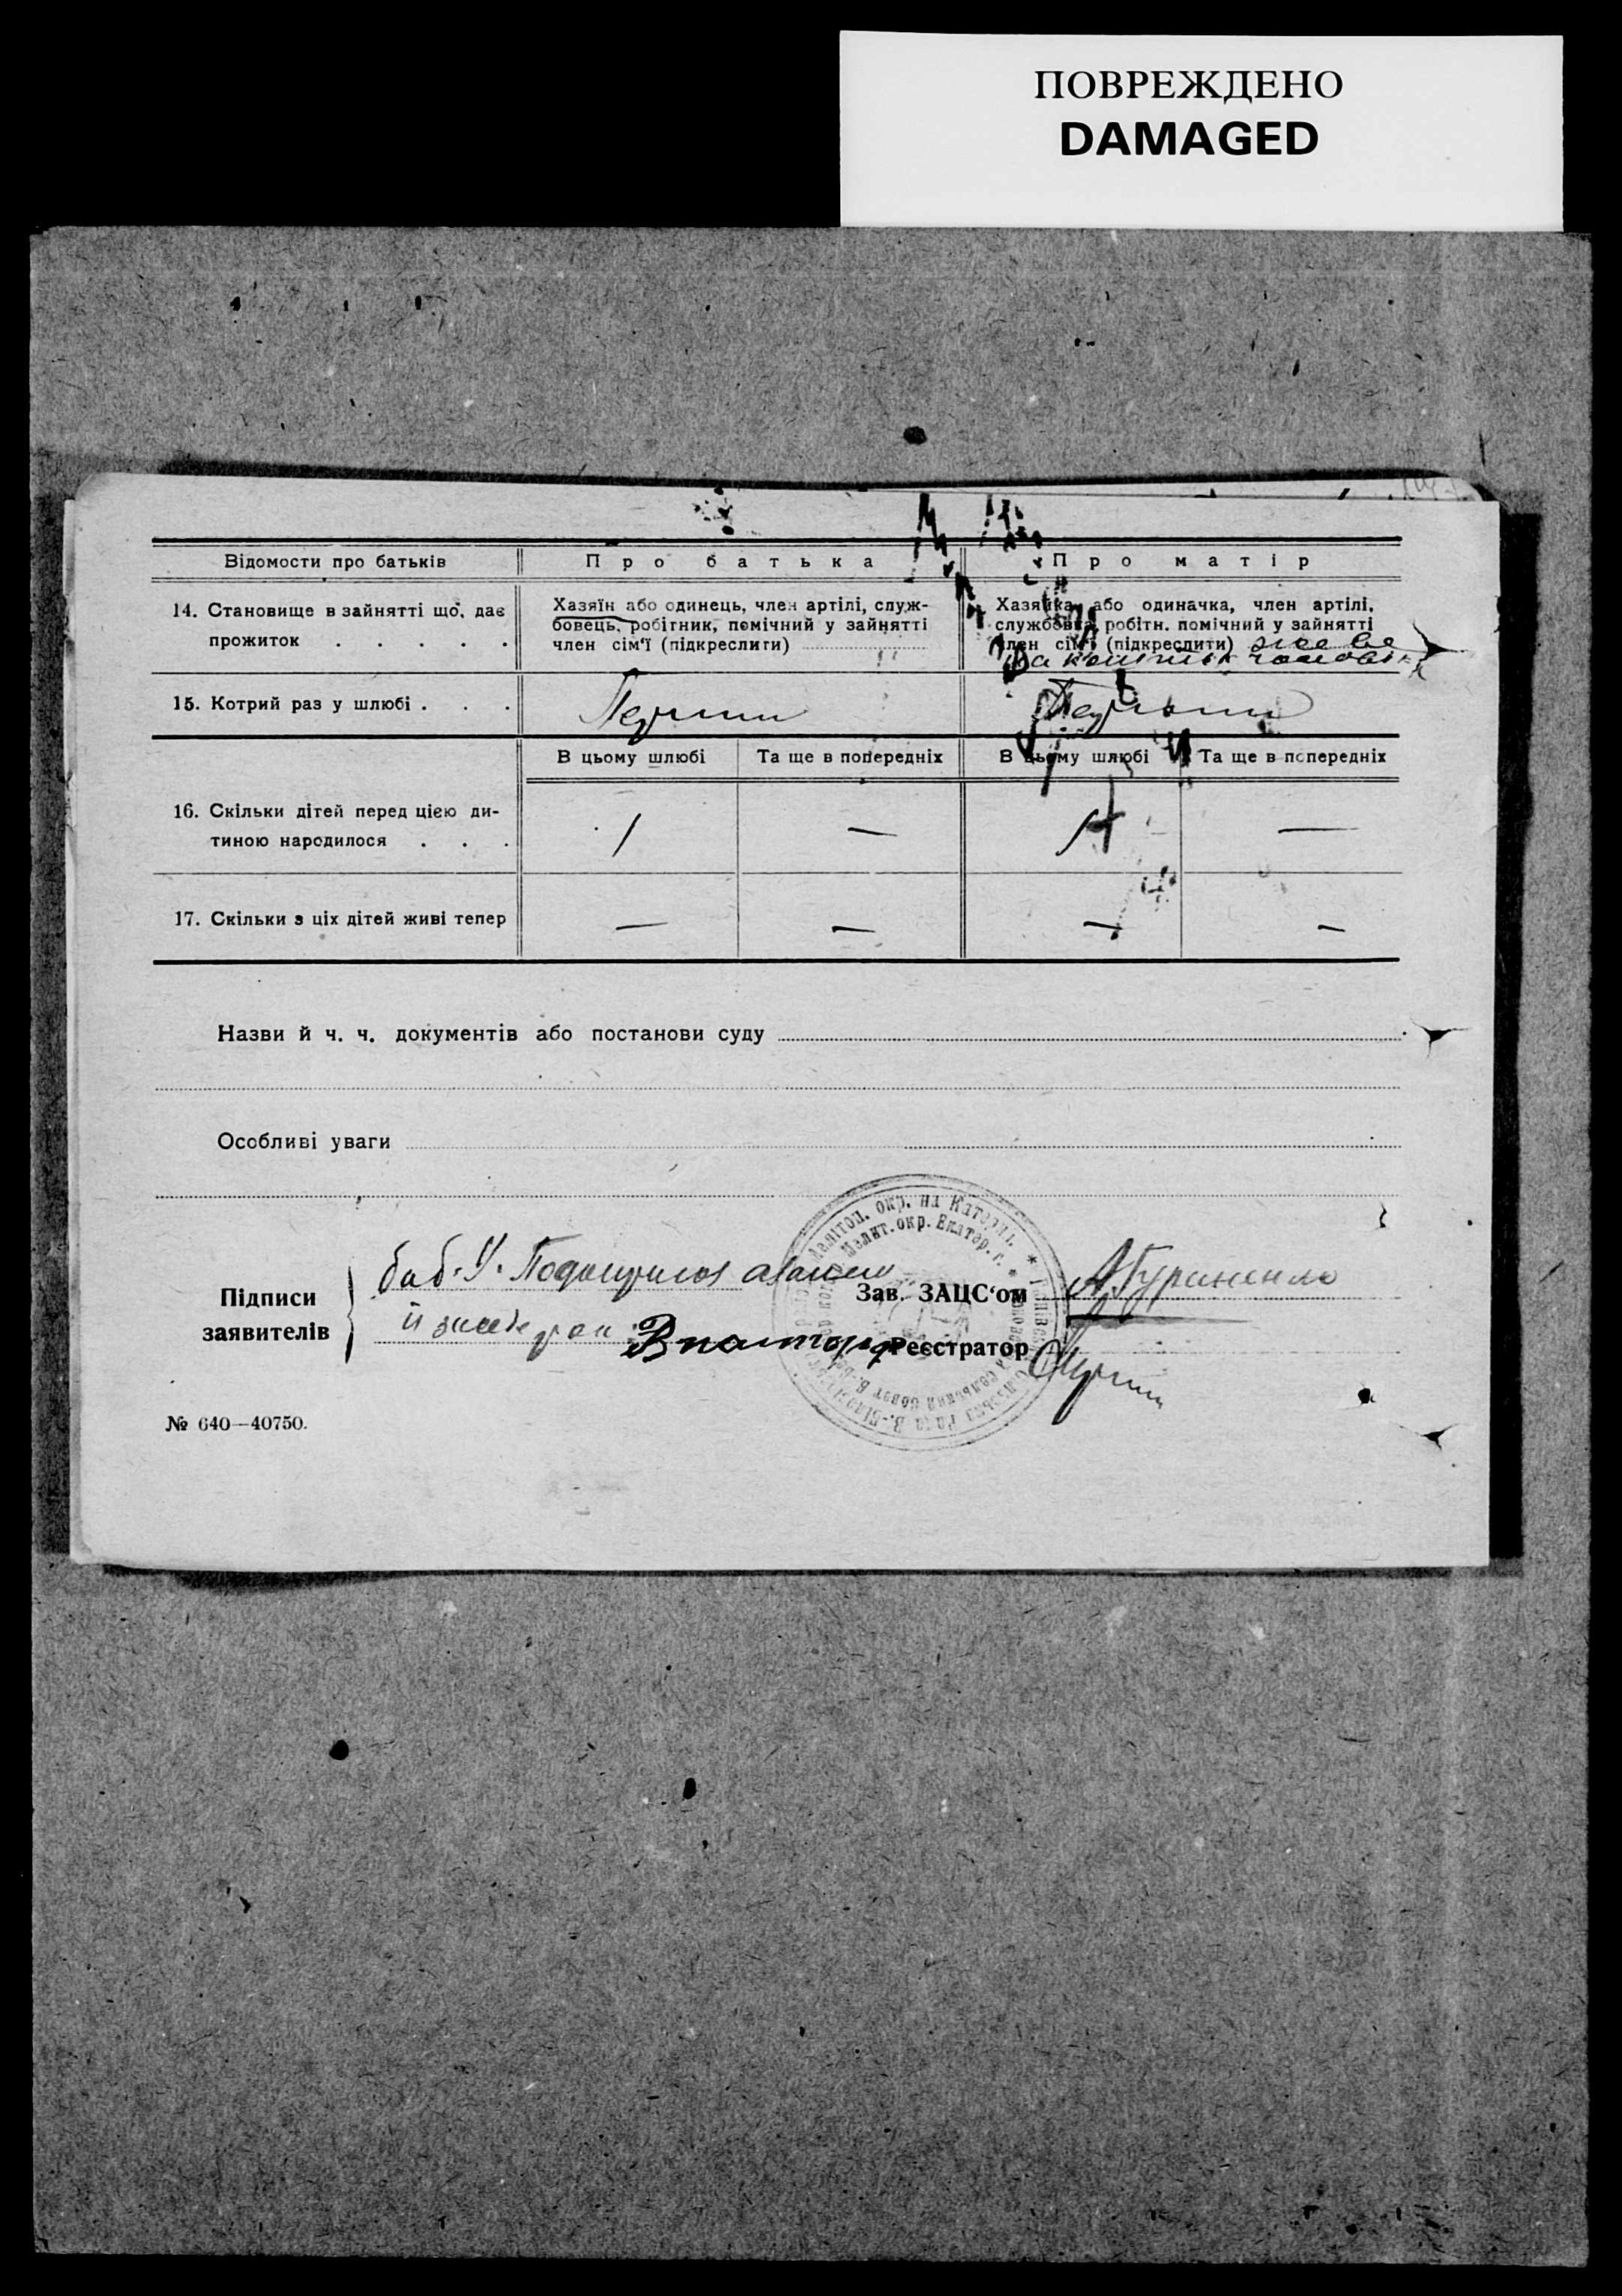 ПОВРЕЖДЕНО
DAMAGED
Відомости про батьків
Про батька
Про матір
14. Становище в зайнятті що, дає
прожиток . . . . .
Хазяїн або одинець, член артілі, служ-
бовець, робітник, помічний у зайнятті
член сім'ї (підкреслити)
Хазяйка або одиначка, член артілі,
службовка, робітн. помічний у зайнятті
член сім'ї (підкреслити) живе
на
15. Котрий раз у шлюбі . . .
Перший
Перший
В цьому шлюбі
Та ще в попередніх
В цьому шлюбі
Та ще в попередніх
16. Скільки дітей перед цією ди-
тиною народилося . . .
1
—
1
—
17. Скільки з ціх дітей живі тепер
—
—
—
—
Назви й ч. ч. документів або постанови суду
Особливі уваги
Мелітоп. окр. на Катерин.
Мелит. окр. Екатер. г.
Підписи
заявителів
Зав. ЗАЦС'ом
Реєстратор
№ 640—40750.